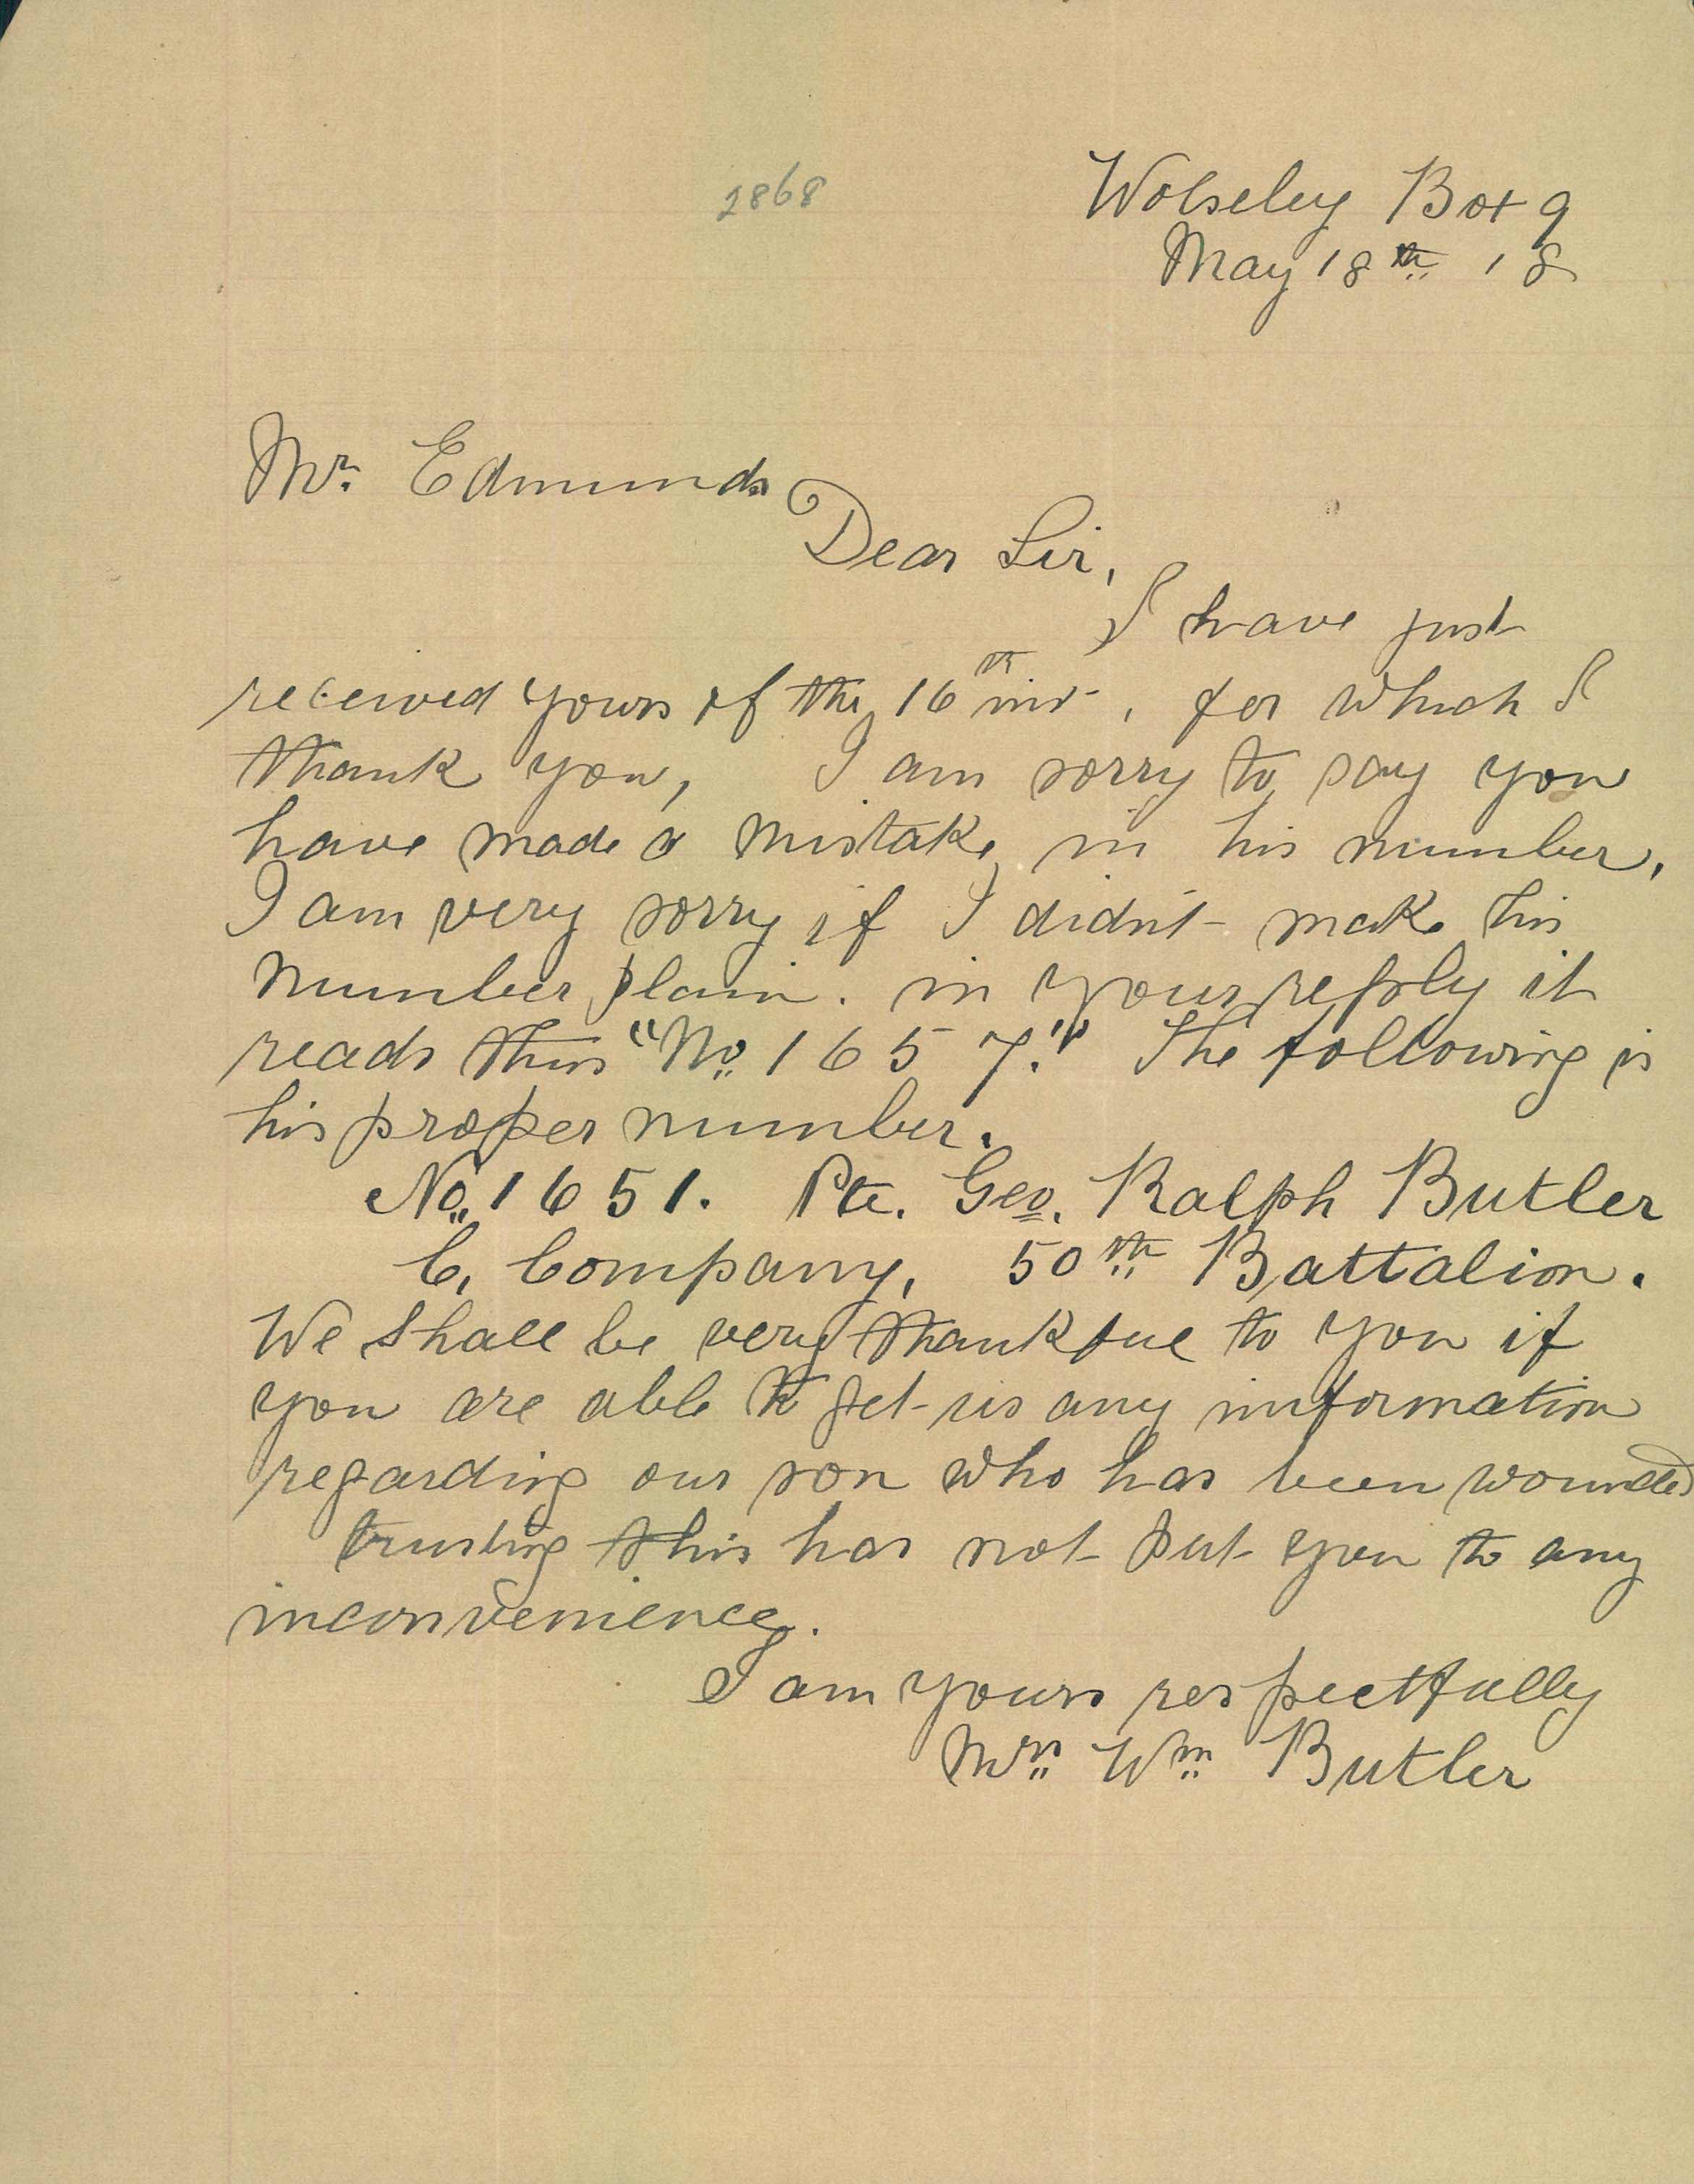 2868
Wolseley Box 9
May 18th 18
Mr. Edmunds
Dear Sir,
I have just
received yours of the 16th inst, for which I
thank you, I am sorry to say you
have made a mistake in his number,
I am very sorry if I didn't make his
number plain. in your reply it
reads thus "No 1657." The following is
his proper number.
No. 1651. Pte. Geo. Ralph Butler
C, Company, 50th Battalion.
We shall be very thankful to you if
you are able to get us any information
regarding our son who has been wounded
trusting this has not put you to any
inconvenience.
I am yours respectfully
Mrs Wm Butler